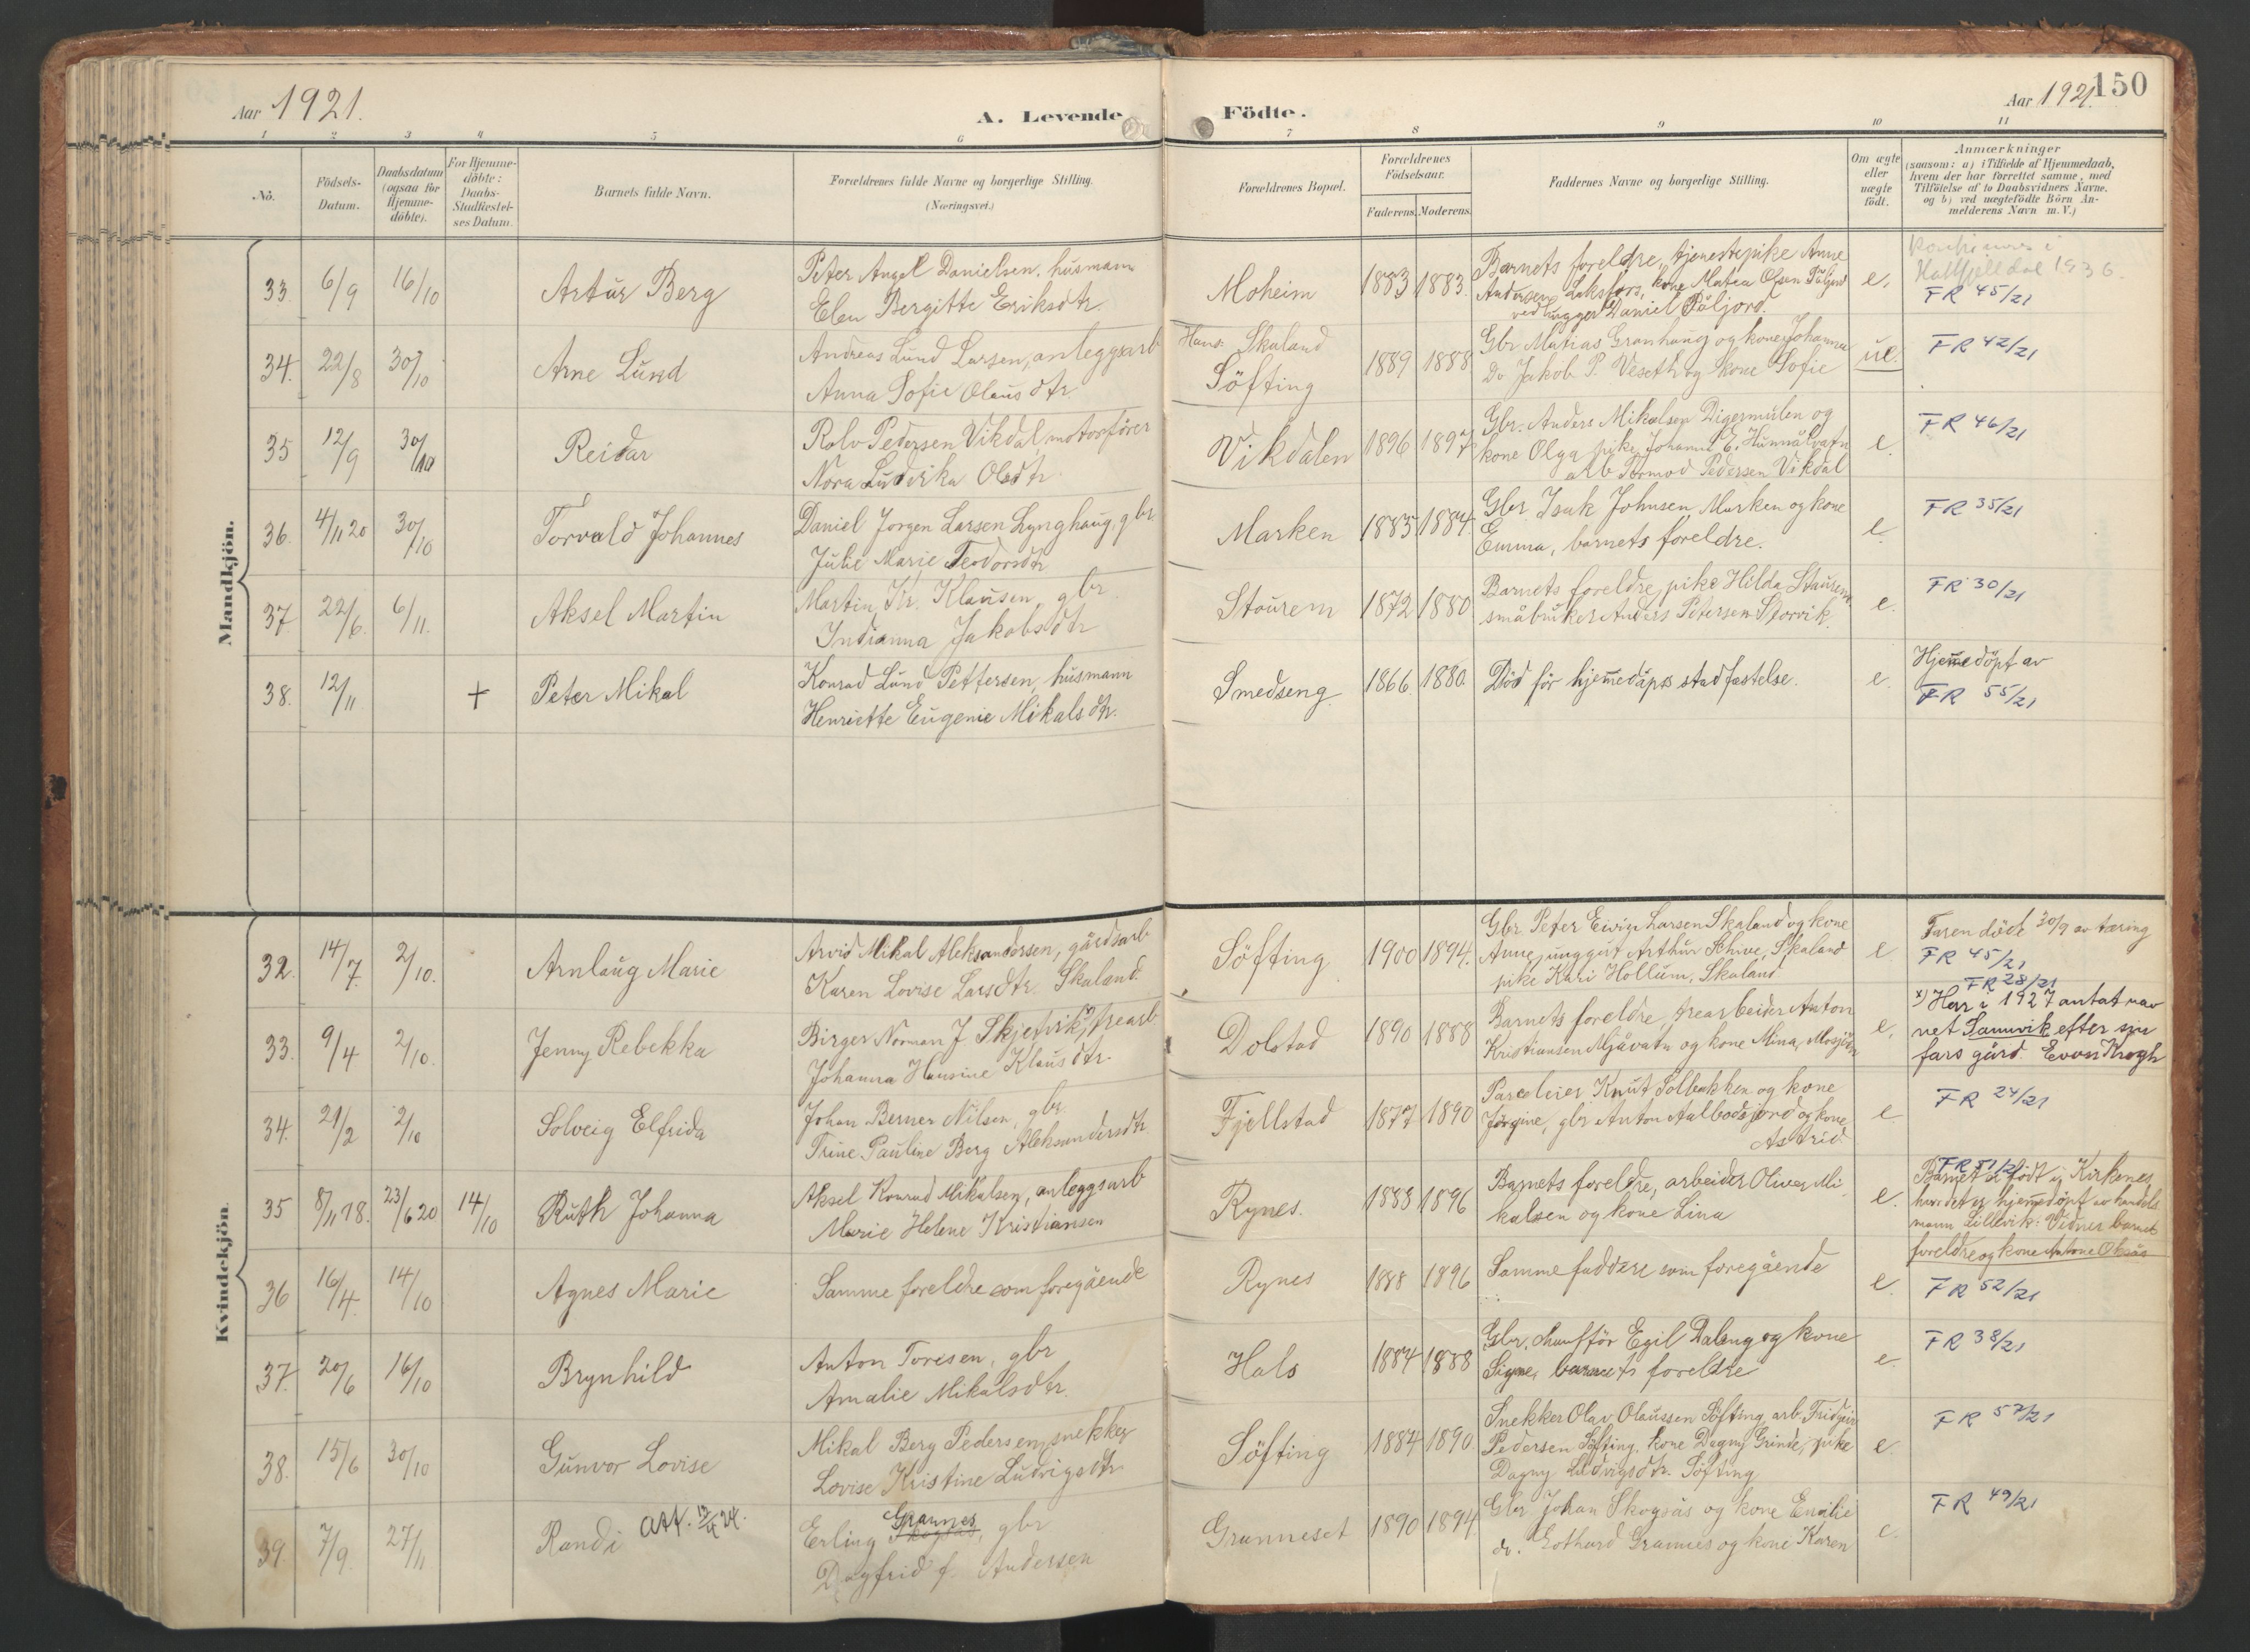 Aar 1921.
A. Levende
Födte.
Aar 1921.
150
1 2 3 4 5 6 7 8 9 10 11
No.
Födsels-Datum.
Daabsdatum (ogsaa for Hjemme-döbte).
For Hjemme-döbte: Daabs-Stadfæstel-ses Datum.
Barnets fulde Navn.
Forældrenes fulde Navne og borgerlige Stilling.
(Næringsvei.)
Forældrenes Bopæl.
Forældrenes Födselsaar.
Faderens. Moderens.
Faddernes Navne og borgerlige Stilling.
Om ægte eller uægte födt.
Anmærkninger
(saasom: a) i Tilfælde af Hjemmedaab,
hvem der har forrettet samme, med
Tilföielse af to Daabsvidners Navne.
og b) ved uægtefödte Börn An-
melderens Navn m. V.)
Mandkjön.
33. 6/9 16/10 Artur Berg
Peter Angel Danielsen, husmann
Elen Bergitte Eriksdtr.
Moheim 1883 1883.
Barnets foreldre, tjenestepike Anne
Andersen Laksfors, kone Matea Olsen Påljord
vedhugger Daniel Påljord.
e.
Hattfjelldal 1936.
FR 45/21
34. 22/8 30/10 Arne Lund
Andreas Lund Larsen, anleggsarb
Anna Sofie Olausdtr.
Hans: Skaland
Söfting 1889 1888
Gbr Matias Granhaug og kone Johanna
Do Jakob P. Veseth og kone Sofie
ue.
FR 42/21
35 12/9 30/10 Reidar
Rolv Pedersen Vikdal, motorfører
Nora Ludvika Olsdtr
Vikdalen 1896 1897
Gbr. Anders Mikalsen Digermulen og
kone Olga pike Johanna E. Hunnålvatn
arb Tormod Pedersen Vikdal
e.
FR 46/21
36. 4/11 20 30/10 Torvald Johannes
Daniel Jörgen Larsen Lynghaug, gbr.
Julie Marie Teodorsdtr
Marken 1885 1884.
Gbr. Isak Johnsen Marken og kone
Emma, barnets foreldre.
e.
FR 35/21
37. 22/6. 6/11. Aksel Martin
Martin Kr. Klausen, gbr.
Indianna Jakobsdtr
Staurem 1872 1880
Barnets foreldre, pike Hilda Staurem
småbruker Anders Petersen Storvik.
e.
FR 30/21
38. 12/11 + Peter Mikal
Konrad Lund Pettersen, husmann
Henriette Eugenie Mikalsdtr.
Smedseng 1866. 1880.
Död för hjemmedåps stadfæstelse.
e.
Hjemmedöpt av
FR 55/21
Kvindekjön.
32. 14/7. 2/10. Arnlaug Marie
Arvid Mikal Aleksandersen, gårdsarb
Karen Lovise Larsdtr. Skaland.
Söfting 1900 1894.
Gbr Peter Eivin Larsen Skaland og kone
Anne, unggut Arthur Schive, Skaland
pike Kari Hollum, Skaland.
e.
Faren döde 30/9 av tæring
FR 45/21
33. 9/4 2/10. Jenny Rebekka
Birger Norman J Skjetvik x) trearb
Johanna Hansine Klausdtr.
Dolstad 1890 1888
Barnets foreldre, trearbeider Anton
Kristiansen Mjåvatn og kone Mina, Mosjöen
e.
FR 28/21
x) Har i 1927 antat nav
net Samvik efter sin
fars gård. Evon Krogh
34. 21/2 2/10 Solveig Elfrida
Johan Berner Nilsen, gbr.
Trine Pauline Berg Aleksandersdtr
Fjellstad 1877 1890
Parseleier Knut Solbakken og kone
Jörgine, gbr Anton Aalbodsjord og kone
Astrid.
e
FR 24/21
35 8/11 18. 23/6 20 14/10 Ruth Johanna
Aksel Konrad Mikalsen, anleggsarb
Marie Helene Kristiansen
Rynes. 1888 1896
Barnets foreldre, arbeider Oliver Mi
kalsen og kone Lina
e.
FR 51/21
Barnet er födt i Kirkenes,
hvor det er hjemmedöpt av handels
mann Lillevik: Vidner barnets
foreldre og kone Antone Oksås
36 16/4. 14/10 Agnes Marie
Samme foreldre som foregående
Rynes 1888 1896
Samme faddere som foregående
e.
FR 52/21
37. 20/6 16/10 Brynhild
Anton Toresen, gbr
Amalie Mikalsdtr.
Hals 1884 1888
Gbr. chauffør Egil Daleng og kone
Signe, barnets foreldre
e.
FR 38/21
38. 15/6 30/10 Gunvor Lovise
Mikal Berg Pedersen, snekker
Lovise Kristine Ludvigsdtr.
Söfting 1884 1890
Snekker Olav Olaussen Söfting, arb. Fridjun
Pedersen Söfting, kone Dagny Grinde, pike
Dagny Ludvigsdtr. Söfting
e.
FR 57/21
39. 7/9. 27/11 Randi att. 12/4 24.
Grannes
Erling Skogsås, gbr
Dagfrid f. Andersen
Granneset 1890 1894
Gbr Johan Skogsås og kone Emilie
do. Gothard Grannes og kone Karen
e.
FR 49/21